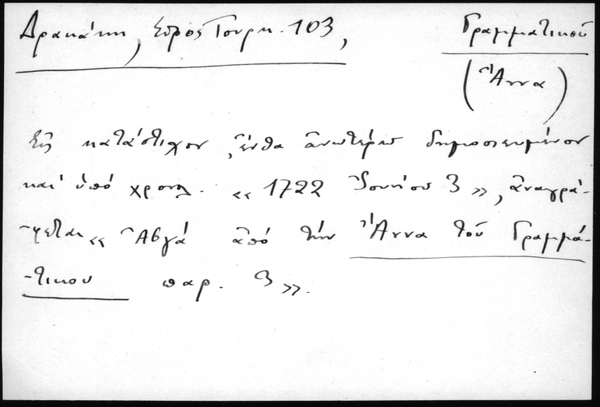 Δρακάκη, Σύρος Τουρκ. 103,
Γραμματικοῦ
(Ἄννα)
Εἰς κατάστιχον ἔνθα ἀνωτέρω δημοσιευμένον
καὶ ὑπό χρονολ. «1722 Ἰουνίου 3», ἀναγρά-
φεται «Ἀβγά ἀπό τήν Ἄννα τοῦ Γραμμά-
-τικου παρ. 3».